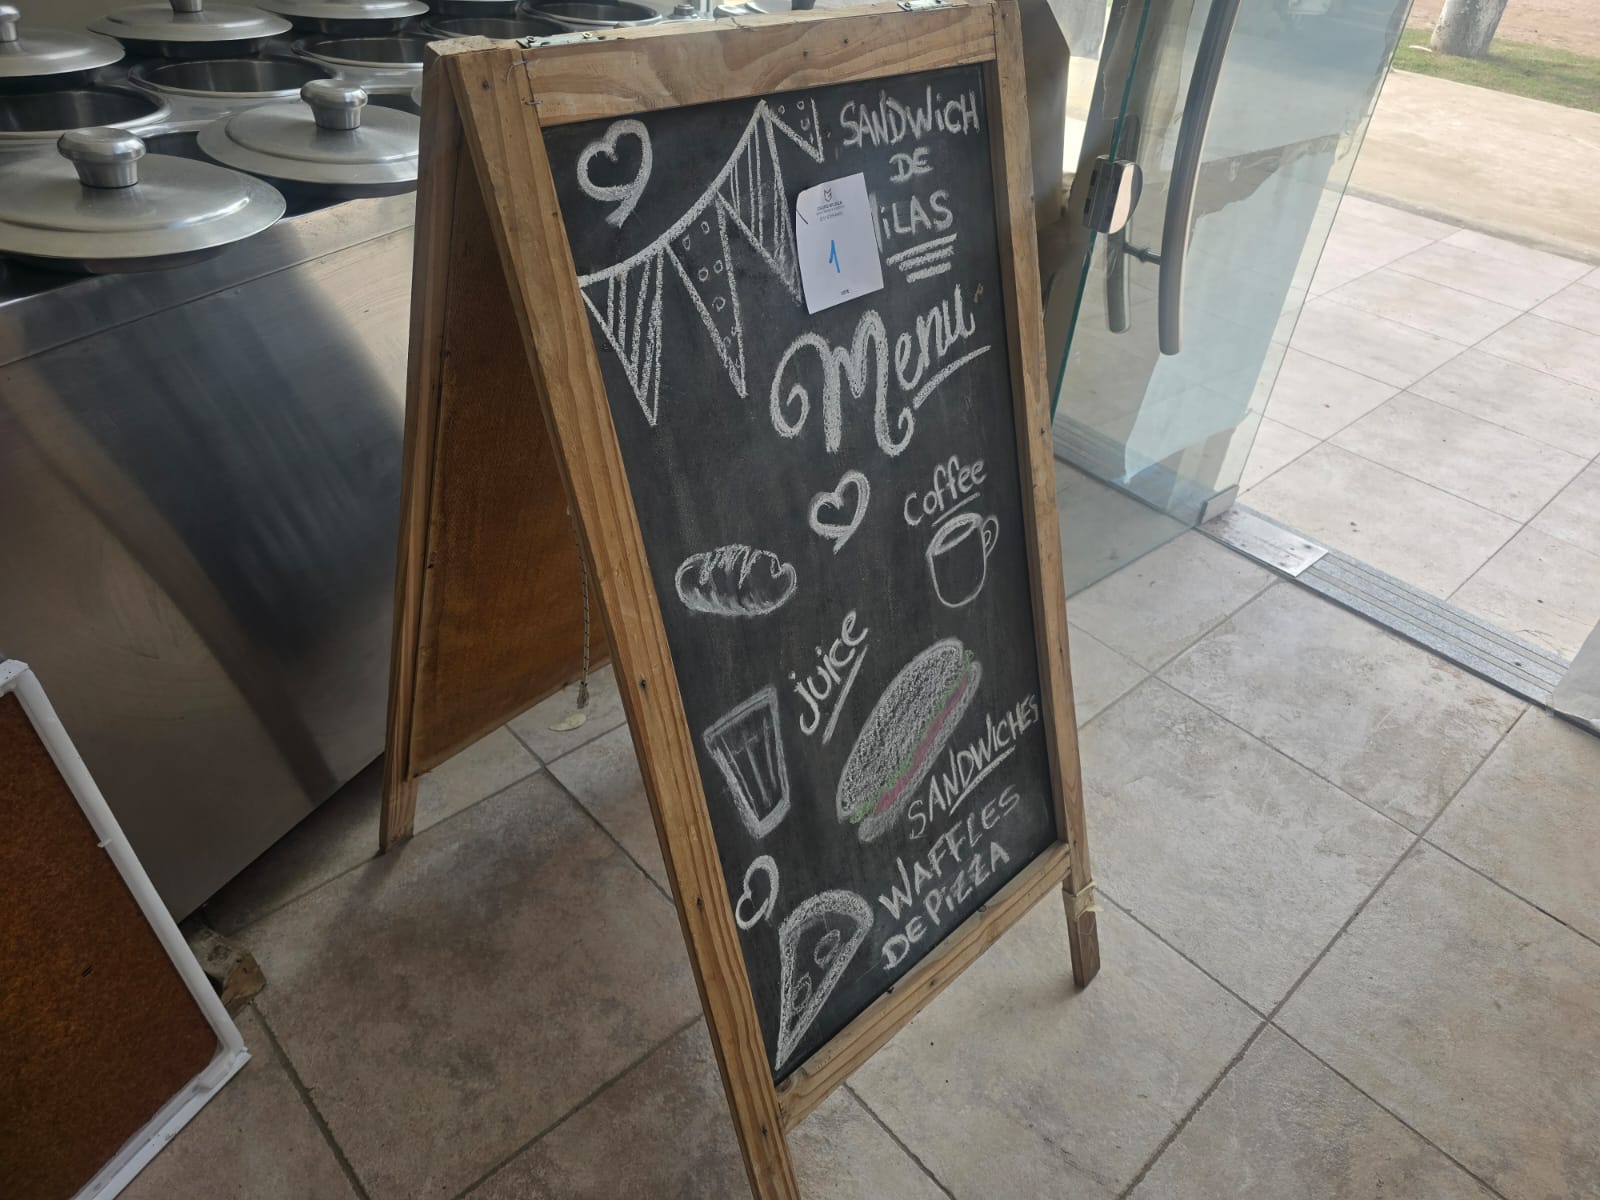 SANDWICH
DE
ILAS
1
Menu
Coffee
Juice
SANDWICHES
WAFFLES
DE PIZZA